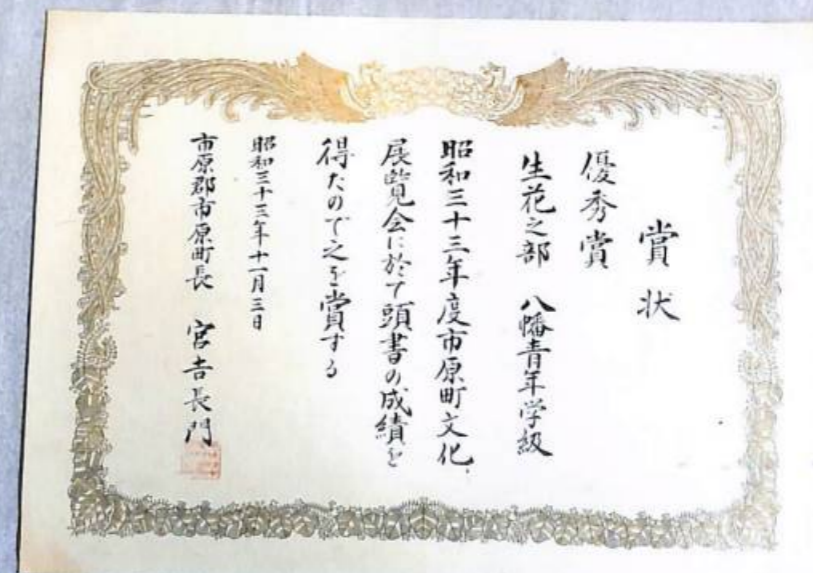 賞状
優秀賞
生花之部 八幡青年学級
昭和三十三年度市原町文化
展覧会に於て頭書の成績を
得たので之を賞する
昭和三十三年十一月三日
市原郡市原町長 宮吉長門